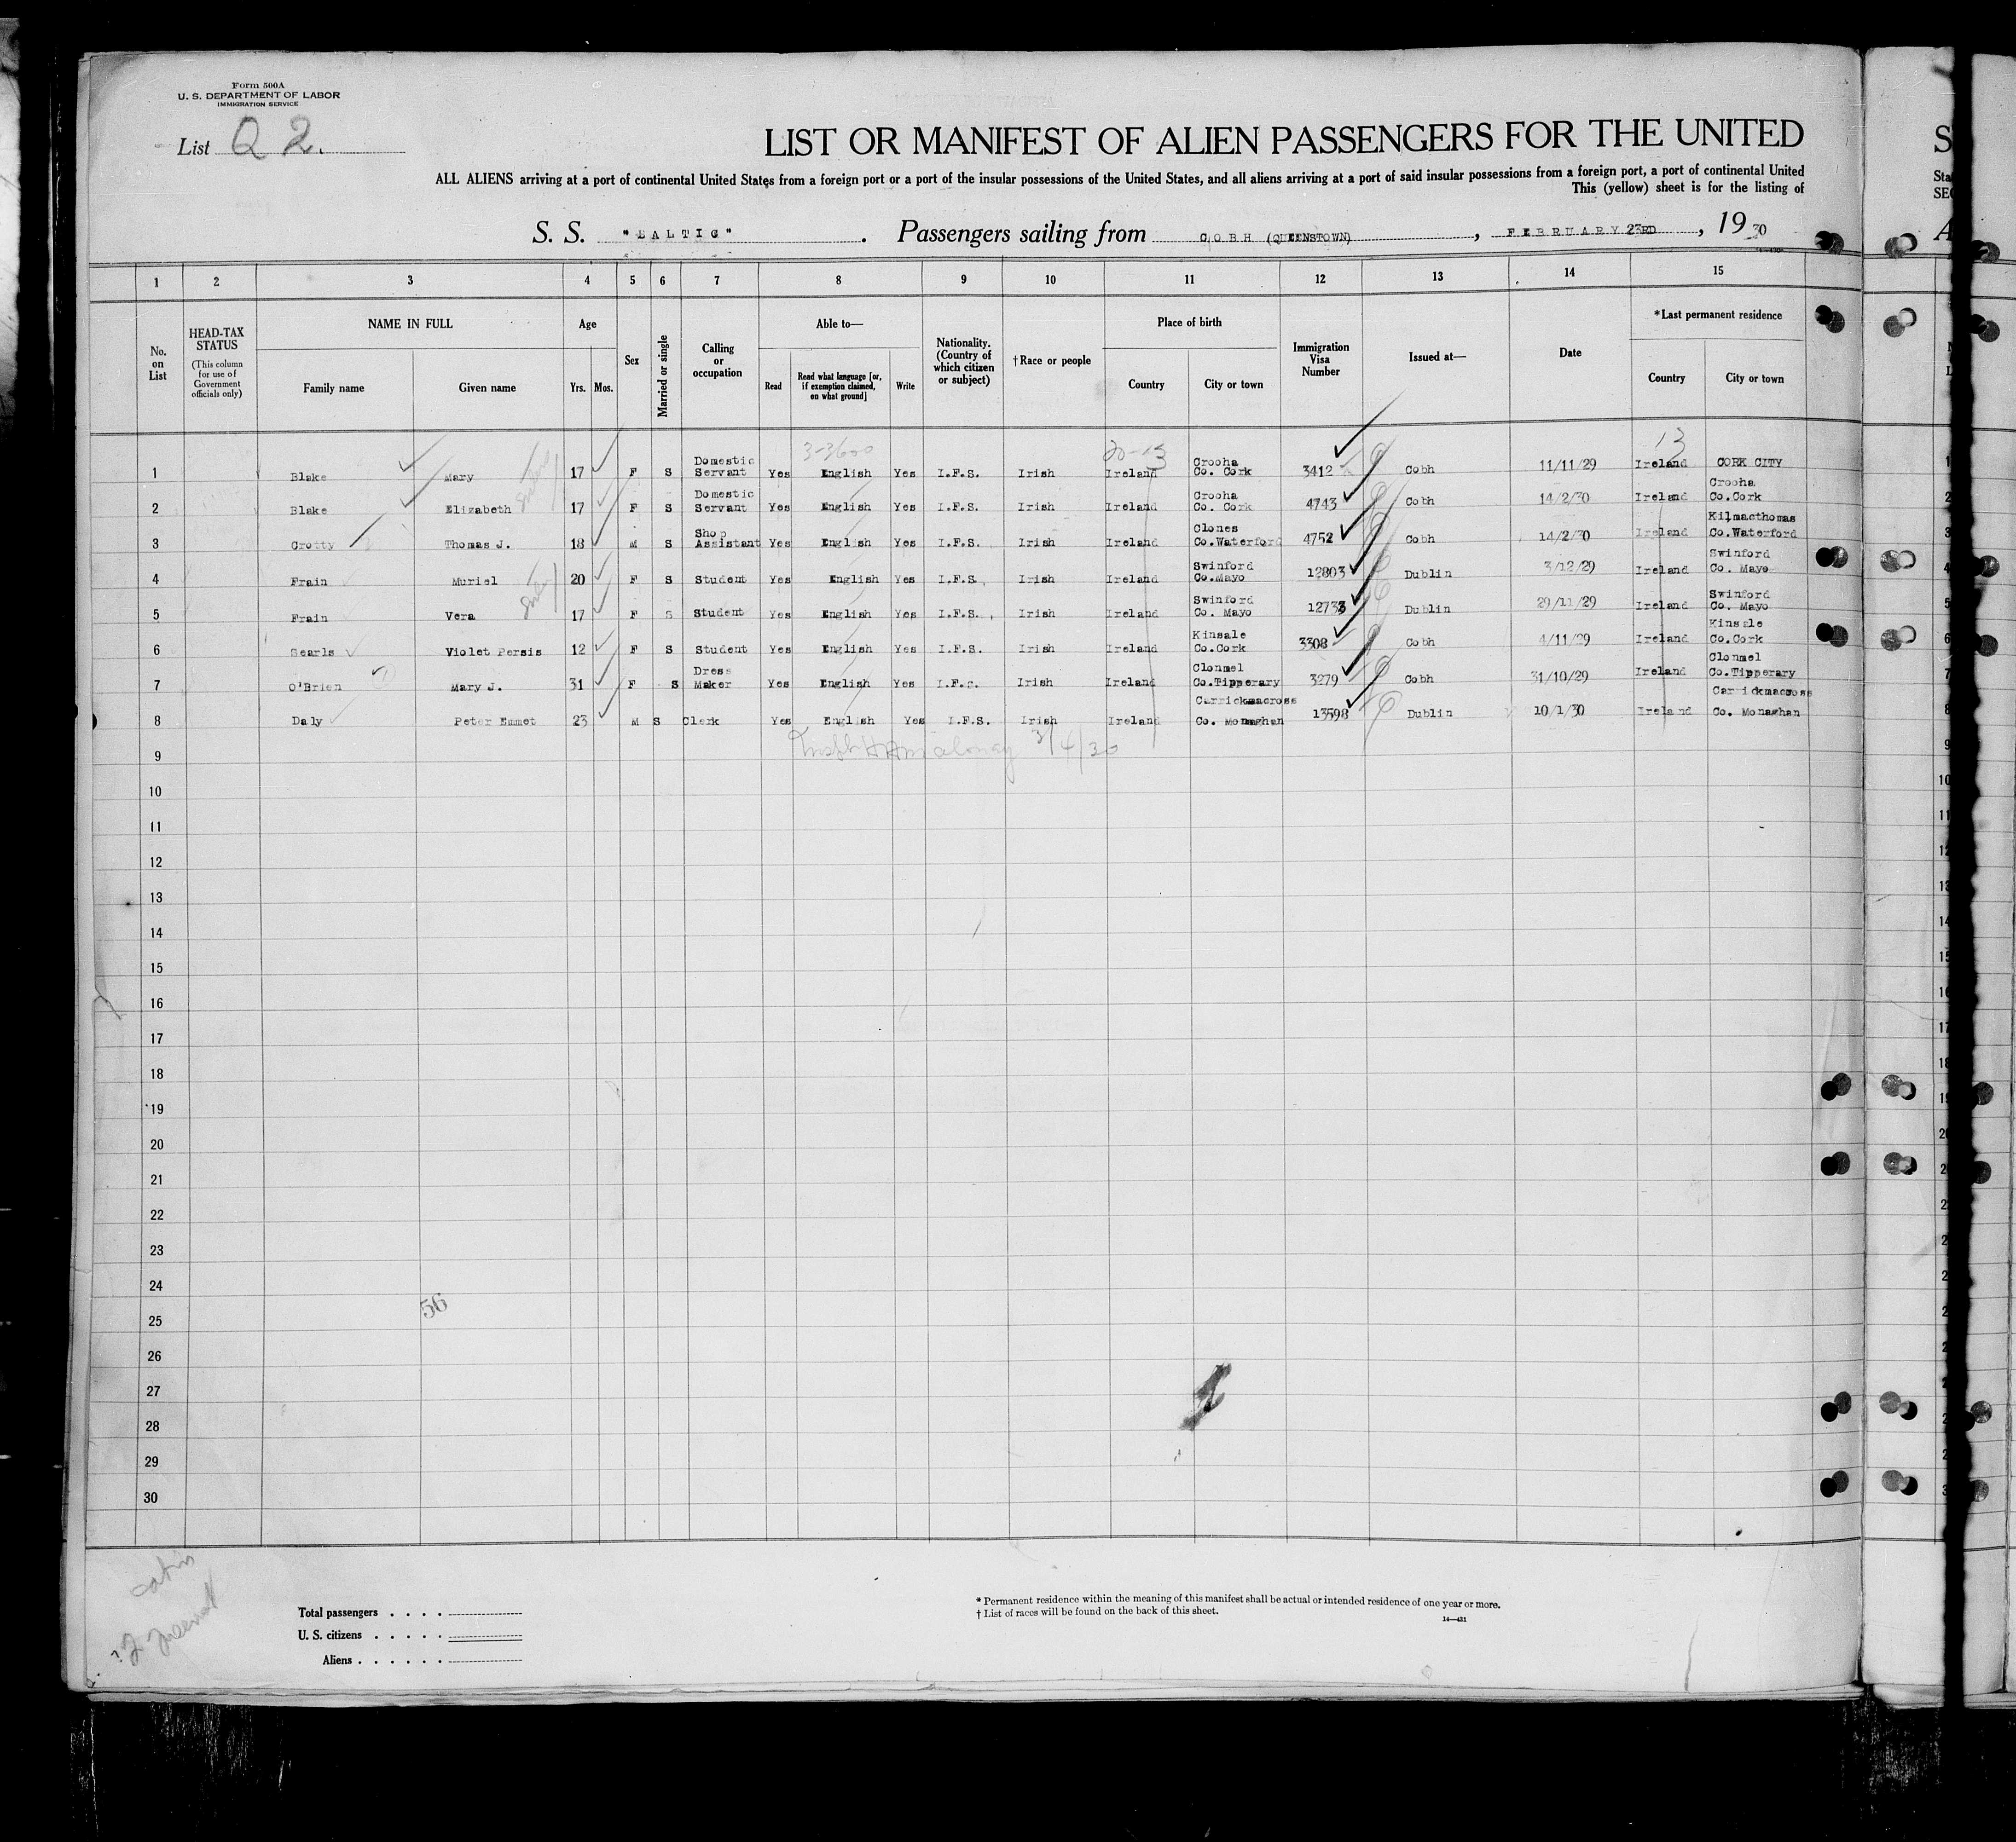 Form 500A
U. S. DEPARTMENT OF LABOR
IMMIGRATION SERVICE
List Q 2.
LIST OR MANIFEST OF ALIEN PASSENGERS FOR THE UNITED
ALL ALIENS arriving at a port of continental United States from a foreign port or a port of the insular possessions of the United States, and all aliens arriving at a port of said insular possessions from a foreign port, a port of continental United
This (yellow) sheet is for the listing of
S. S. "BALTIC". Passengers sailing from COBH (QUEENSTOWN), FEBRUARY 23RD, 1930
1 2 3 4 5 6 7 8 9 10 11 12 13 14 15
No. on List
HEAD-TAX STATUS
(This column for use of Government officials only)
NAME IN FULL
Family name Given name
Age
Yrs. Mos.
Sex
Married or single
Calling or occupation
Able to—
Read
Read what language [or, if exemption claimed, on what ground]
Write
Nationality. (Country of which citizen or subject)
†Race or people
Place of birth
Country City or town
Immigration Visa Number
Issued at—
Date
*Last permanent residence
Country City or town
3-3600 20-13 13
1 Blake Mary 17 F S Domestic Servant Yes English Yes I.F.S. Irish Ireland Crooha Co. Cork 3412 Cobh 11/11/29 Ireland CORK CITY
2 Blake Elizabeth 17 F S Domestic Servant Yes English Yes I.F.S. Irish Ireland Crooha Co. Cork 4743 Cobh 14/2/30 Ireland Crooha Co.Cork
3 Crotty Thomas J. 18 M S Shop Assistant Yes English Yes I.F.S. Irish Ireland Clones Co.Waterford 4752 Cobh 14/2/30 Ireland Kilmacthomas Co.Waterford
4 Frain Muriel 20 F S Student Yes English Yes I.F.S. Irish Ireland Swinford Co.Mayo 12803 Dublin 3/12/29 Ireland Swinford Co. Mayo
5 Frain Vera 17 F S Student Yes English Yes I.F.S. Irish Ireland Swinford Co. Mayo 12733 Dublin 29/11/29 Ireland Swinford Co. Mayo
6 Searls Violet Persis 12 F S Student Yes English Yes I.F.S. Irish Ireland Kinsale Co.Cork 3308 Cobh 4/11/29 Ireland Kinsale Co.Cork
7 O'Brien Mary J. 31 F S Dress Maker Yes English Yes I.F.S. Irish Ireland Clonmel Co.Tipperary 3279 Cobh 31/10/29 Ireland Clonmel Co.Tipperary
8 Daly Peter Emmet 23 M S Clerk Yes English Yes I.F.S. Irish Ireland Carrickmacross Co. Monaghan 13598 Dublin 10/1/30 Ireland Carrickmacross Co. Monaghan
3/4/30
9
10
11
12
13
14
15
16
17
18
19
20
21
22
23
24
56
25
26
27
28
29
30
Total passengers
U. S. citizens
Aliens
* Permanent residence within the meaning of this manifest shall be actual or intended residence of one year or more.
† List of races will be found on the back of this sheet.
14—431